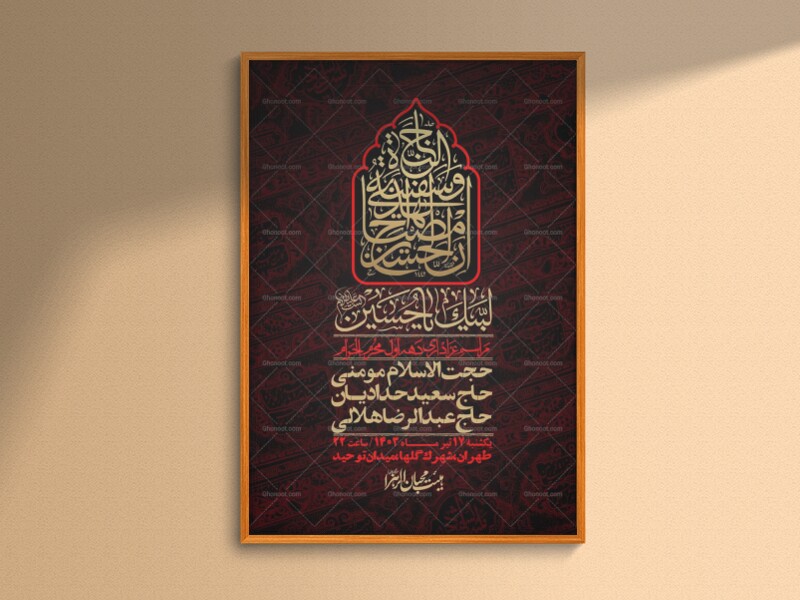 ان الحسین
مصباح الهدی
وسفینة
النجاة
لبیک یا حسین
مراسم عزاداری دهه اول محرم الحرام
حجت الاسلام مومنی
حاج سعید حدادیان
حاج عبدالرضا هلالی
یکشنبه ۱۷ تیر مـــاه ۱۴۰۳ / ساعت ۲۲
طهران، شهرک گلها، میدان توحید
هیئت محبان الزهرا
Ghonoot.com